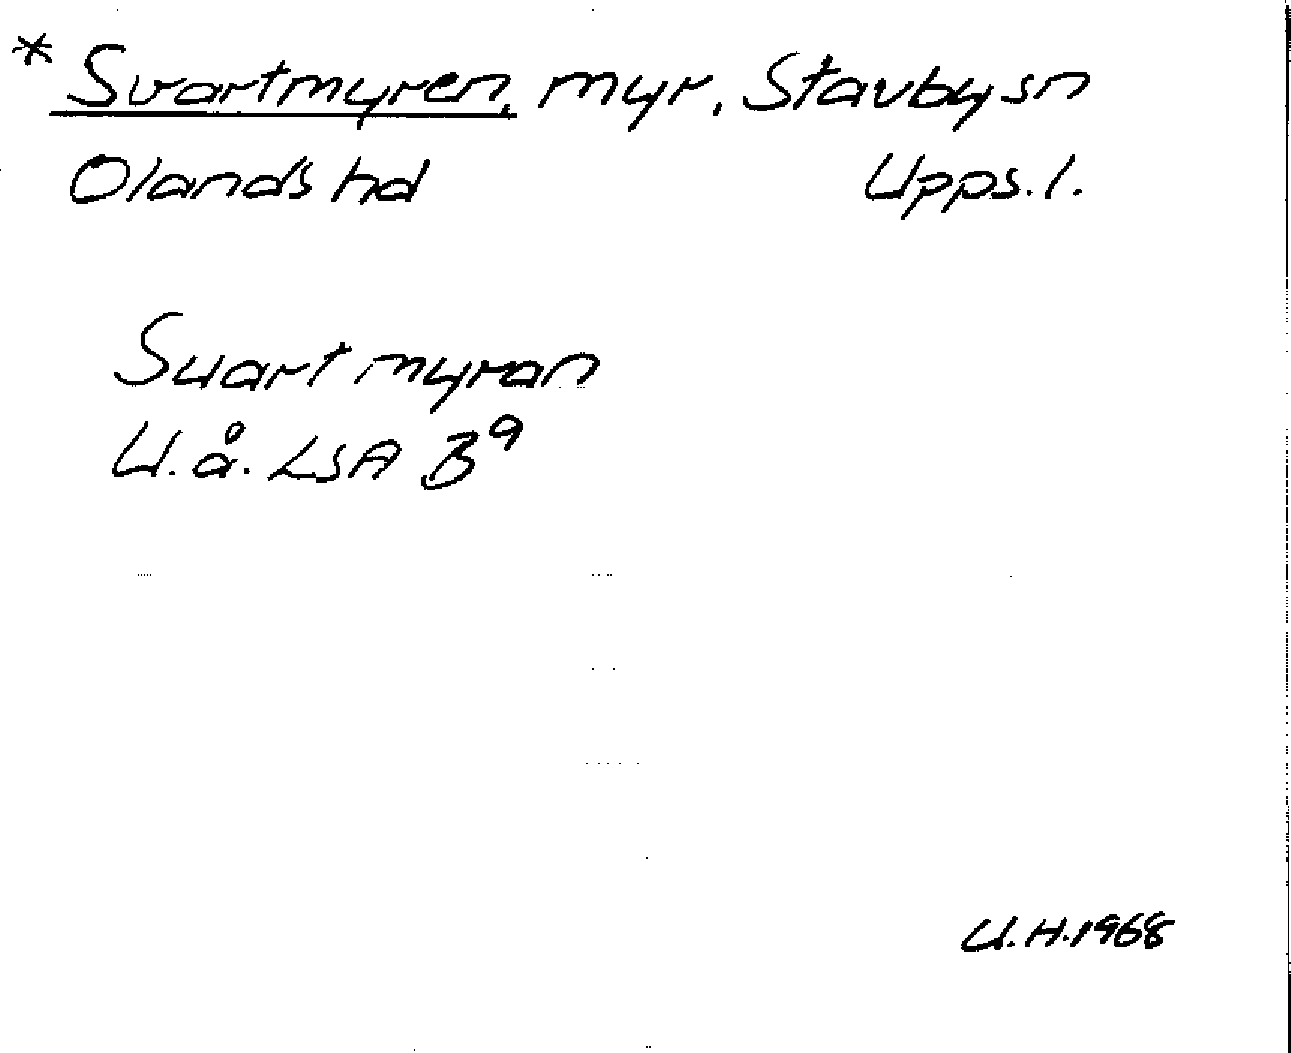 * Svartmyren, myr, Stavby sn
Olands hd Upps. l.
Suart myran
U.å. LSA B9
U.H. 1968